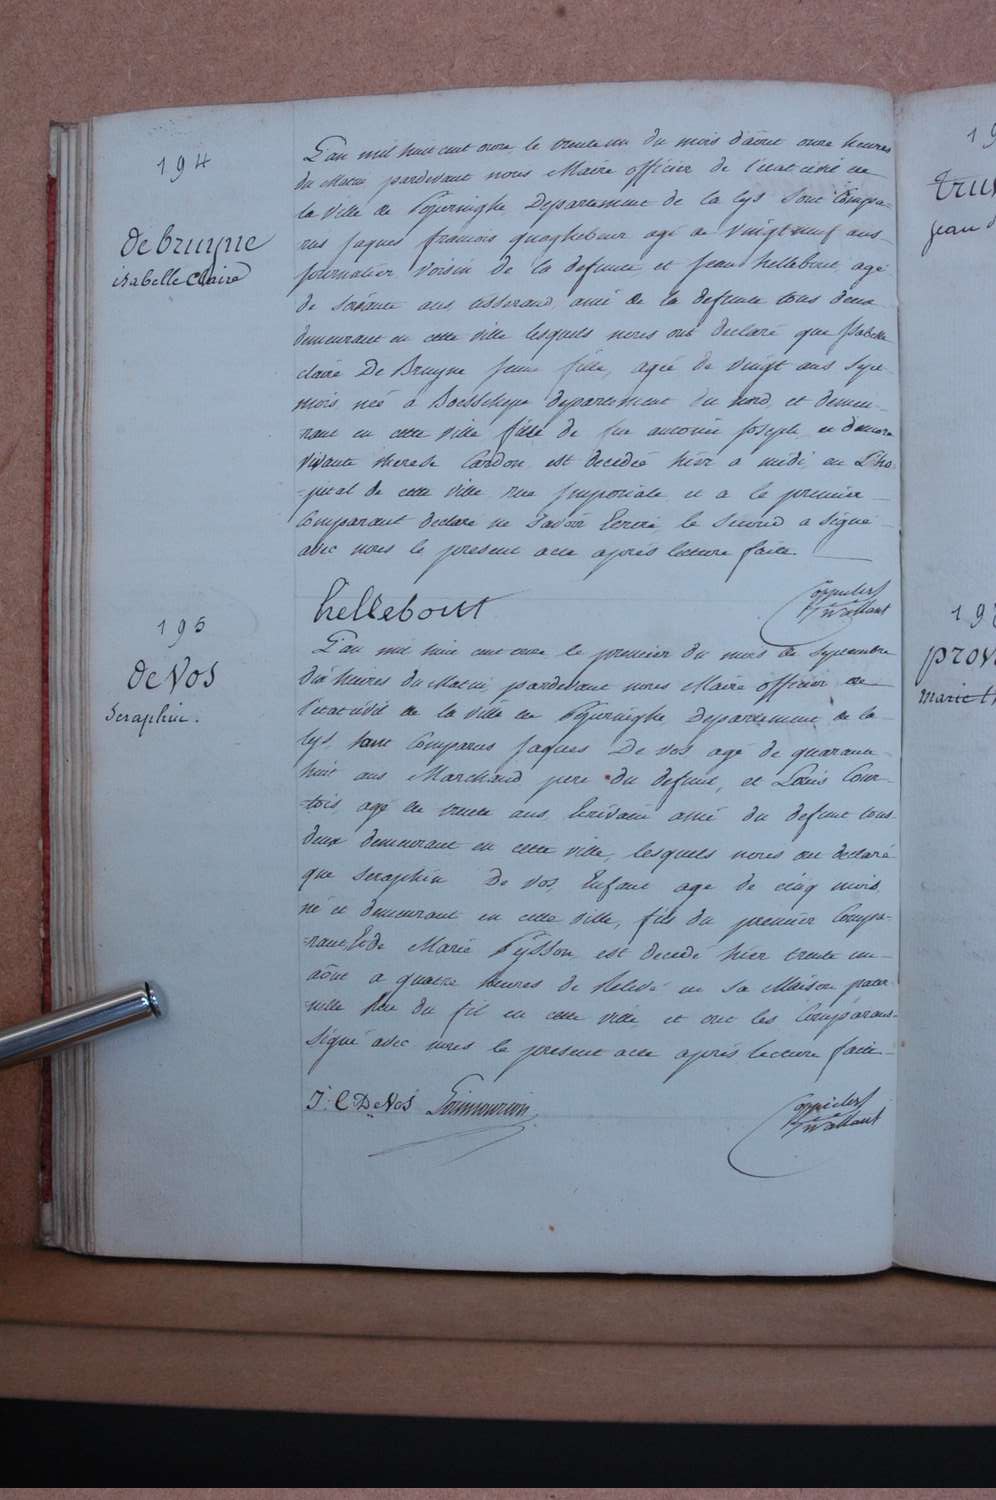 194
debruyne
isabelle Claire
L'an mil huit cent onze, le trente un du mois d'aout onze heures
du Matin pardevant nous Maire officier de l'etat civil de
la ville de Poperinghe Departement de la Lys Sont Compa=
rus Jaques francois quaghebeur agé de Vingt neuf ans
journalier Voisin de la defunte et Jean hellebout agé
de Soixante ans, tisserand, ami de la defunte tous deux
demeurant en cette ville lesquels nous ont declaré que Isabelle
claire De Bruyne jeune fille, agée de Vingt ans Sept
mois, née a Boesschepe departement du nord, et demeu-
rant en cette ville fille de feu antoine Joseph, et d'encore
vivante therese Cardon, est decedée hier a midi, en L'ho
-pital de cette ville rue Imperiale, et a le premier
Comparant declaré ne Savoir Ecrire le Second a Signé
avec nous le present acte aprés lecture faite.
hellebout
195
de Vos
Seraphin.
L'an mil huit cent onze le premier du mois de Septembre
dix heures du Matin, pardevant nous Maire officier de
l'etat civil de la ville de Poperinghe Departement de la
Lys, Sont Comparus Jaques De Vos agé de quarante
huit ans Marchand, pere du defunt, et Louis Cour-
-tois, agé de trente ans, Ecrivain ami du defunt tous
deux demeurant en cette ville, lesquels nous ont declaré
que Seraphin De Vos, Enfant agé de cinq mois,
né et demeurant en cette ville, fils du premier Compa=
-rant, et de Marie est decedé hier trente un
aout a quatre heures de Relevé en Sa Maison
rue du fil en cette ville et ont les Comparans
Signé avec nous le present acte aprés lecture faite
J: C De Vos